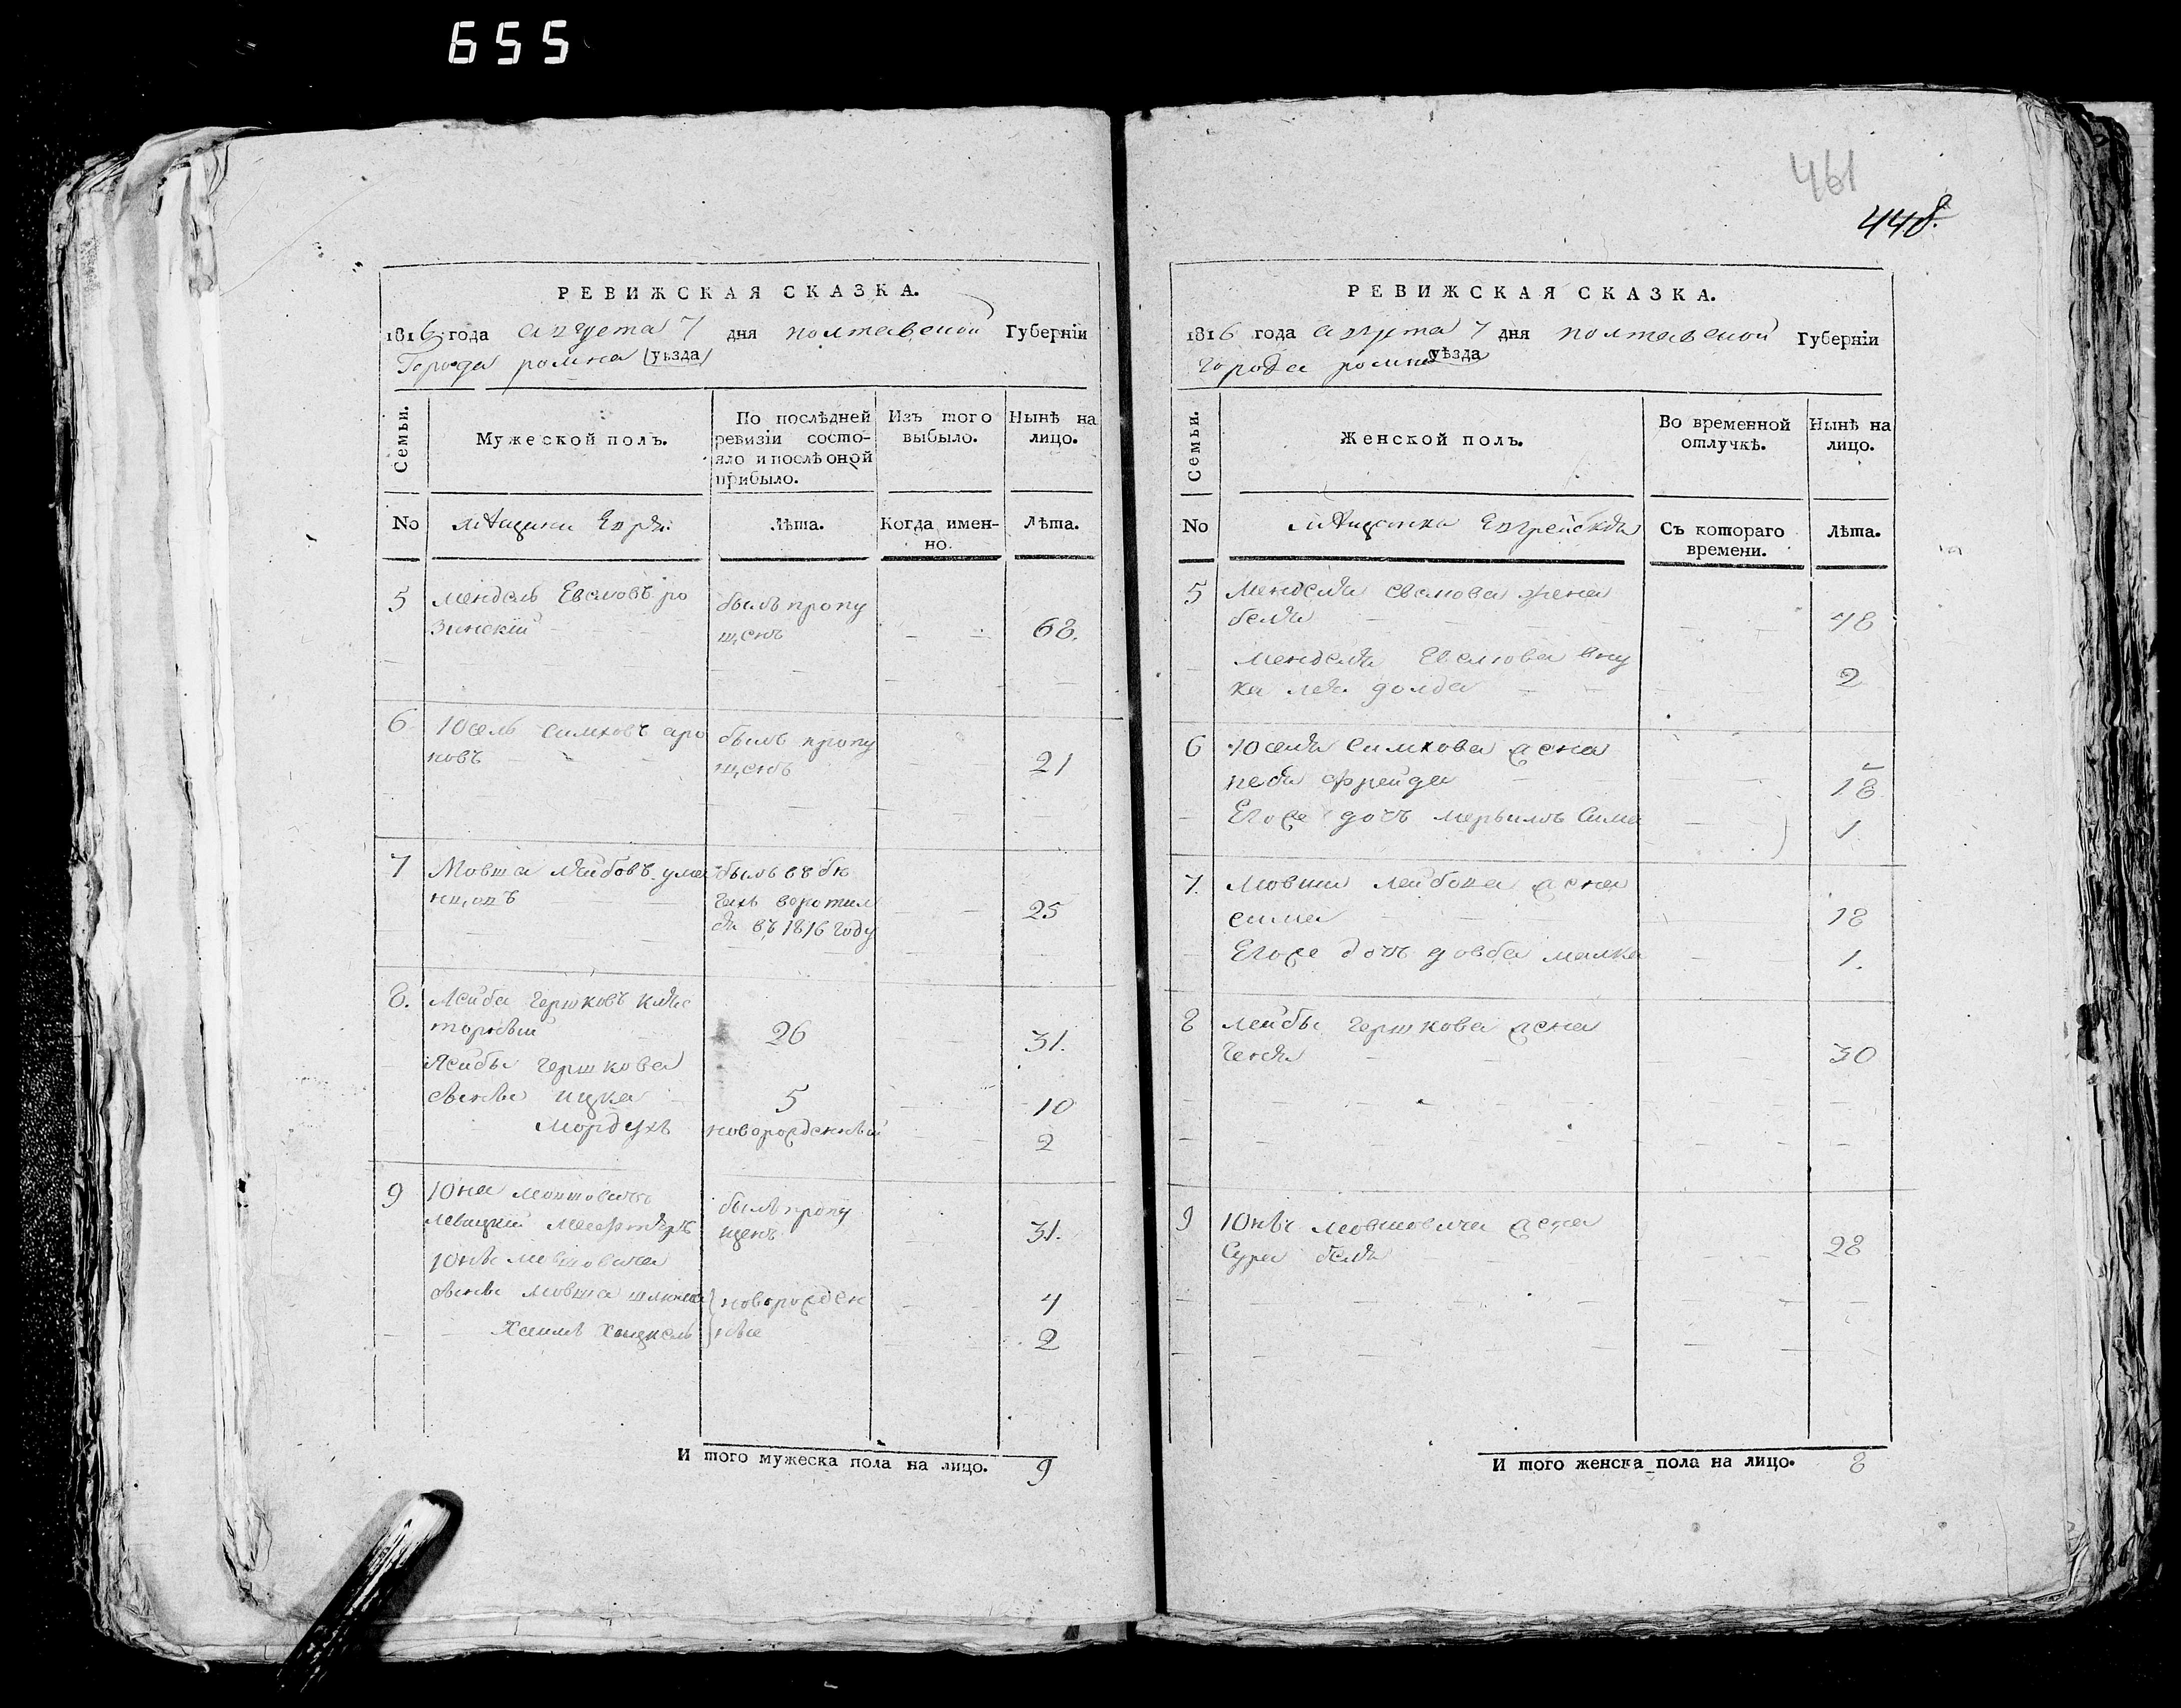 655
РЕВИЖСКАЯ СКАЗКА.
1816 года августа 7 дня полтавской Губерніи
Города ромна (уѣзда)
Семьи.
Мужеской полъ.
По послѣдней ревизіи состо-
яло и послѣ оной
прибыло.
Изъ того
выбыло.
Нынѣ на
лицо.
No
мѣщане Евреи
Лѣта.
Когда имен-
но.
Лѣта.
5 мендель Евелювъ ро
зинскій
былъ пропу
щенъ
68.
6 Юсель симховъ аро
новъ
былъ пропу
щенъ
21
7 Мовша лейбовъ ума
нцовъ
былъ въ бѣ
гахъ воротил
ся въ 1816 году
25
8. Лейба гершковъ
26
31.
Лейбы гершкова
сынъ ицка 5 10
Мордухъ новорожденный 2
9 Юна мовшовичъ
левицкий
былъ пропу
щенъ
31.
Юны мовшовича
сыны мовша новорожден 4
Хаимъ ные 2
И того мужеска пола на лицо. 9
461
448.
РЕВИЖСКАЯ СКАЗКА.
1816 года августа 7 дня полтавской Губерніи
города ромна уѣзда
Семьи.
Женской полъ.
Во временной
отлучкѣ.
Нынѣ на
лицо.
No
мѣщанка Еврейская
Съ котораго
времени.
Лѣта.
5 Менделя евелюва жена
беля 48
Менделя Евелюва вну
ка 2
6 Юселя симхова жена
песя фрейда 18
Егоже дочь сима 1
7. мовши лейбова жена
сима 18
Егоже дочь довба малка 1.
8 лейбы гершкова жена
геня 30
9 Юны мовшовича жена
Сура беля 28
И того женска пола на лицо. 8